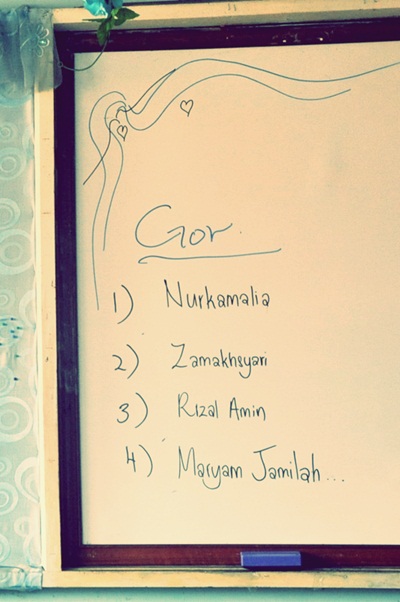 Gor.
1) Nurkamalia
2) Zamakhsyari
3) Rizal Amin
4) Maryam Jamilah...